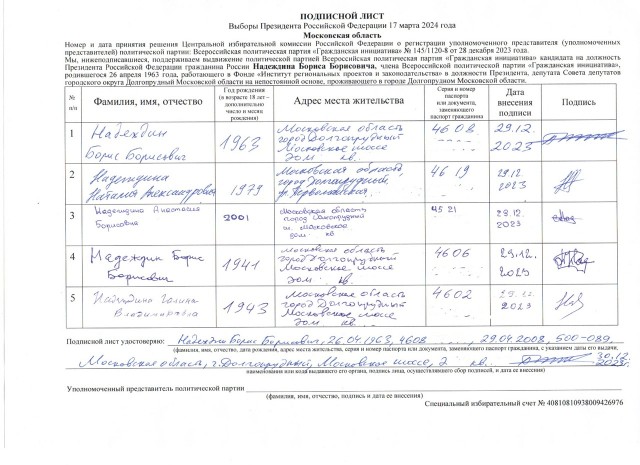 ПОДПИСНОЙ ЛИСТ
Выборы Президента Российской Федерации 17 марта 2024 года
Московская область
Номер и дата принятия решения Центральной избирательной комиссии Российской Федерации о регистрации уполномоченного представителя (уполномоченных
представителей) политической партии: Всероссийская политическая партия «Гражданская инициатива» № 145/1120-8 от 28 декабря 2023 года.
Мы, нижеподписавшиеся, поддерживаем выдвижение политической партией Всероссийская политическая партия «Гражданская инициатива» кандидата на должность
Президента Российской Федерации гражданина России Надеждина Бориса Борисовича, члена Всероссийской политической партии «Гражданская инициатива»,
родившегося 26 апреля 1963 года, работающего в Фонде «Институт региональных проектов и законодательства» в должности Президента, депутата Совета депутатов
городского округа Долгопрудный Московской области на непостоянной основе, проживающего в городе Долгопрудном Московской области.
№ п/п
Фамилия, имя, отчество
Год рождения
(в возрасте 18 лет –
дополнительно
число и месяц
рождения)
Адрес места жительства
Серия и номер
паспорта
или документа,
заменяющего
паспорт гражданина
Дата
внесения
подписи
Подпись
1
Надеждин
Борис Борисович
1963
Московская область
город Долгопрудный
Московское шоссе
дом кв.
46 08
29.12.
2023
2
Надеждина
Наталия Александровна
1979
Московская область
город Долгопрудный,
46 19
29.12
2023
3
Надеждина Анастасия
Борисовна
2001
Московская область
город Долгопрудный
ш. Московское
дом кв
45 21
29.12.
2023
4
Надеждин Борис
Борисович
1941
Московская область
город Долгопрудный
Московское шоссе
дом. кв.
4606
29.12.
2023
5
Надеждина Галина
Владимировна
1943
Московская область
город Долгопрудный
Московское шоссе
дом кв.
4602
29.12.
2023
Подписной лист удостоверяю: Надеждин Борис Борисович, 26.04.1963, 4608 29.04.2008, 500-089
(фамилия, имя, отчество, дата рождения, адрес места жительства, серия и номер паспорта или документа, заменяющего паспорт гражданина, с указанием даты его выдачи,
Московская область, г. Долгопрудный, Московское шоссе, 2 кв. 30.12.2023г.
наименования или кода выдавшего его органа, подпись лица, осуществлявшего сбор подписей, и дата ее внесения)
Уполномоченный представитель политической партии
(фамилия, имя, отчество, подпись и дата ее внесения)
Специальный избирательный счет № 40810810938009426976